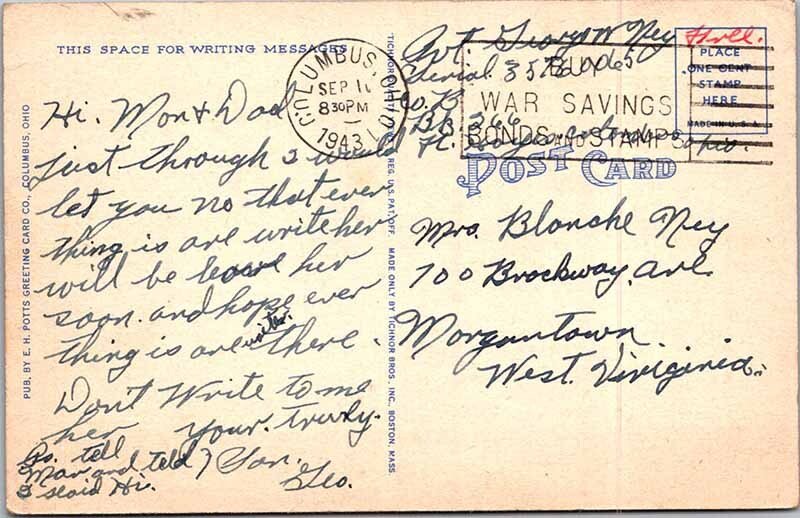 THIS SPACE FOR WRITING MESSAGES
Hi. Mom & Dad
Just through I would
let you no that ever
thing is are write her
will be leave her
soon. and hope ever
thing is are write. there.
Don't Write to me
her your. truly.
Ps. tell Son.
and told Geo.
I seaid Hi.
PUB. BY E. H. POTTS GREETING CARD CO., COLUMBUS, OHIO
COLUMBUS, OHIO
SEP
8 30 PM
1943
TICHNOR QUALITY VIEWS REG. U.S. PAT. OFF. MADE ONLY BY TICHNOR BROS., INC., BOSTON, MASS.
Pvt. George W Ney
Serial.
Co. B
Ft. Hayes Columbus
Ohio.
Free.
BUY
WAR SAVINGS
BONDS AND STAMPS
PLACE
ONE CENT
STAMP
HERE
MADE IN U.S.A.
POST CARD
Mrs. Blanche Ney
700 Brockway. Ave.
Morgantown.
West. Viriginia.